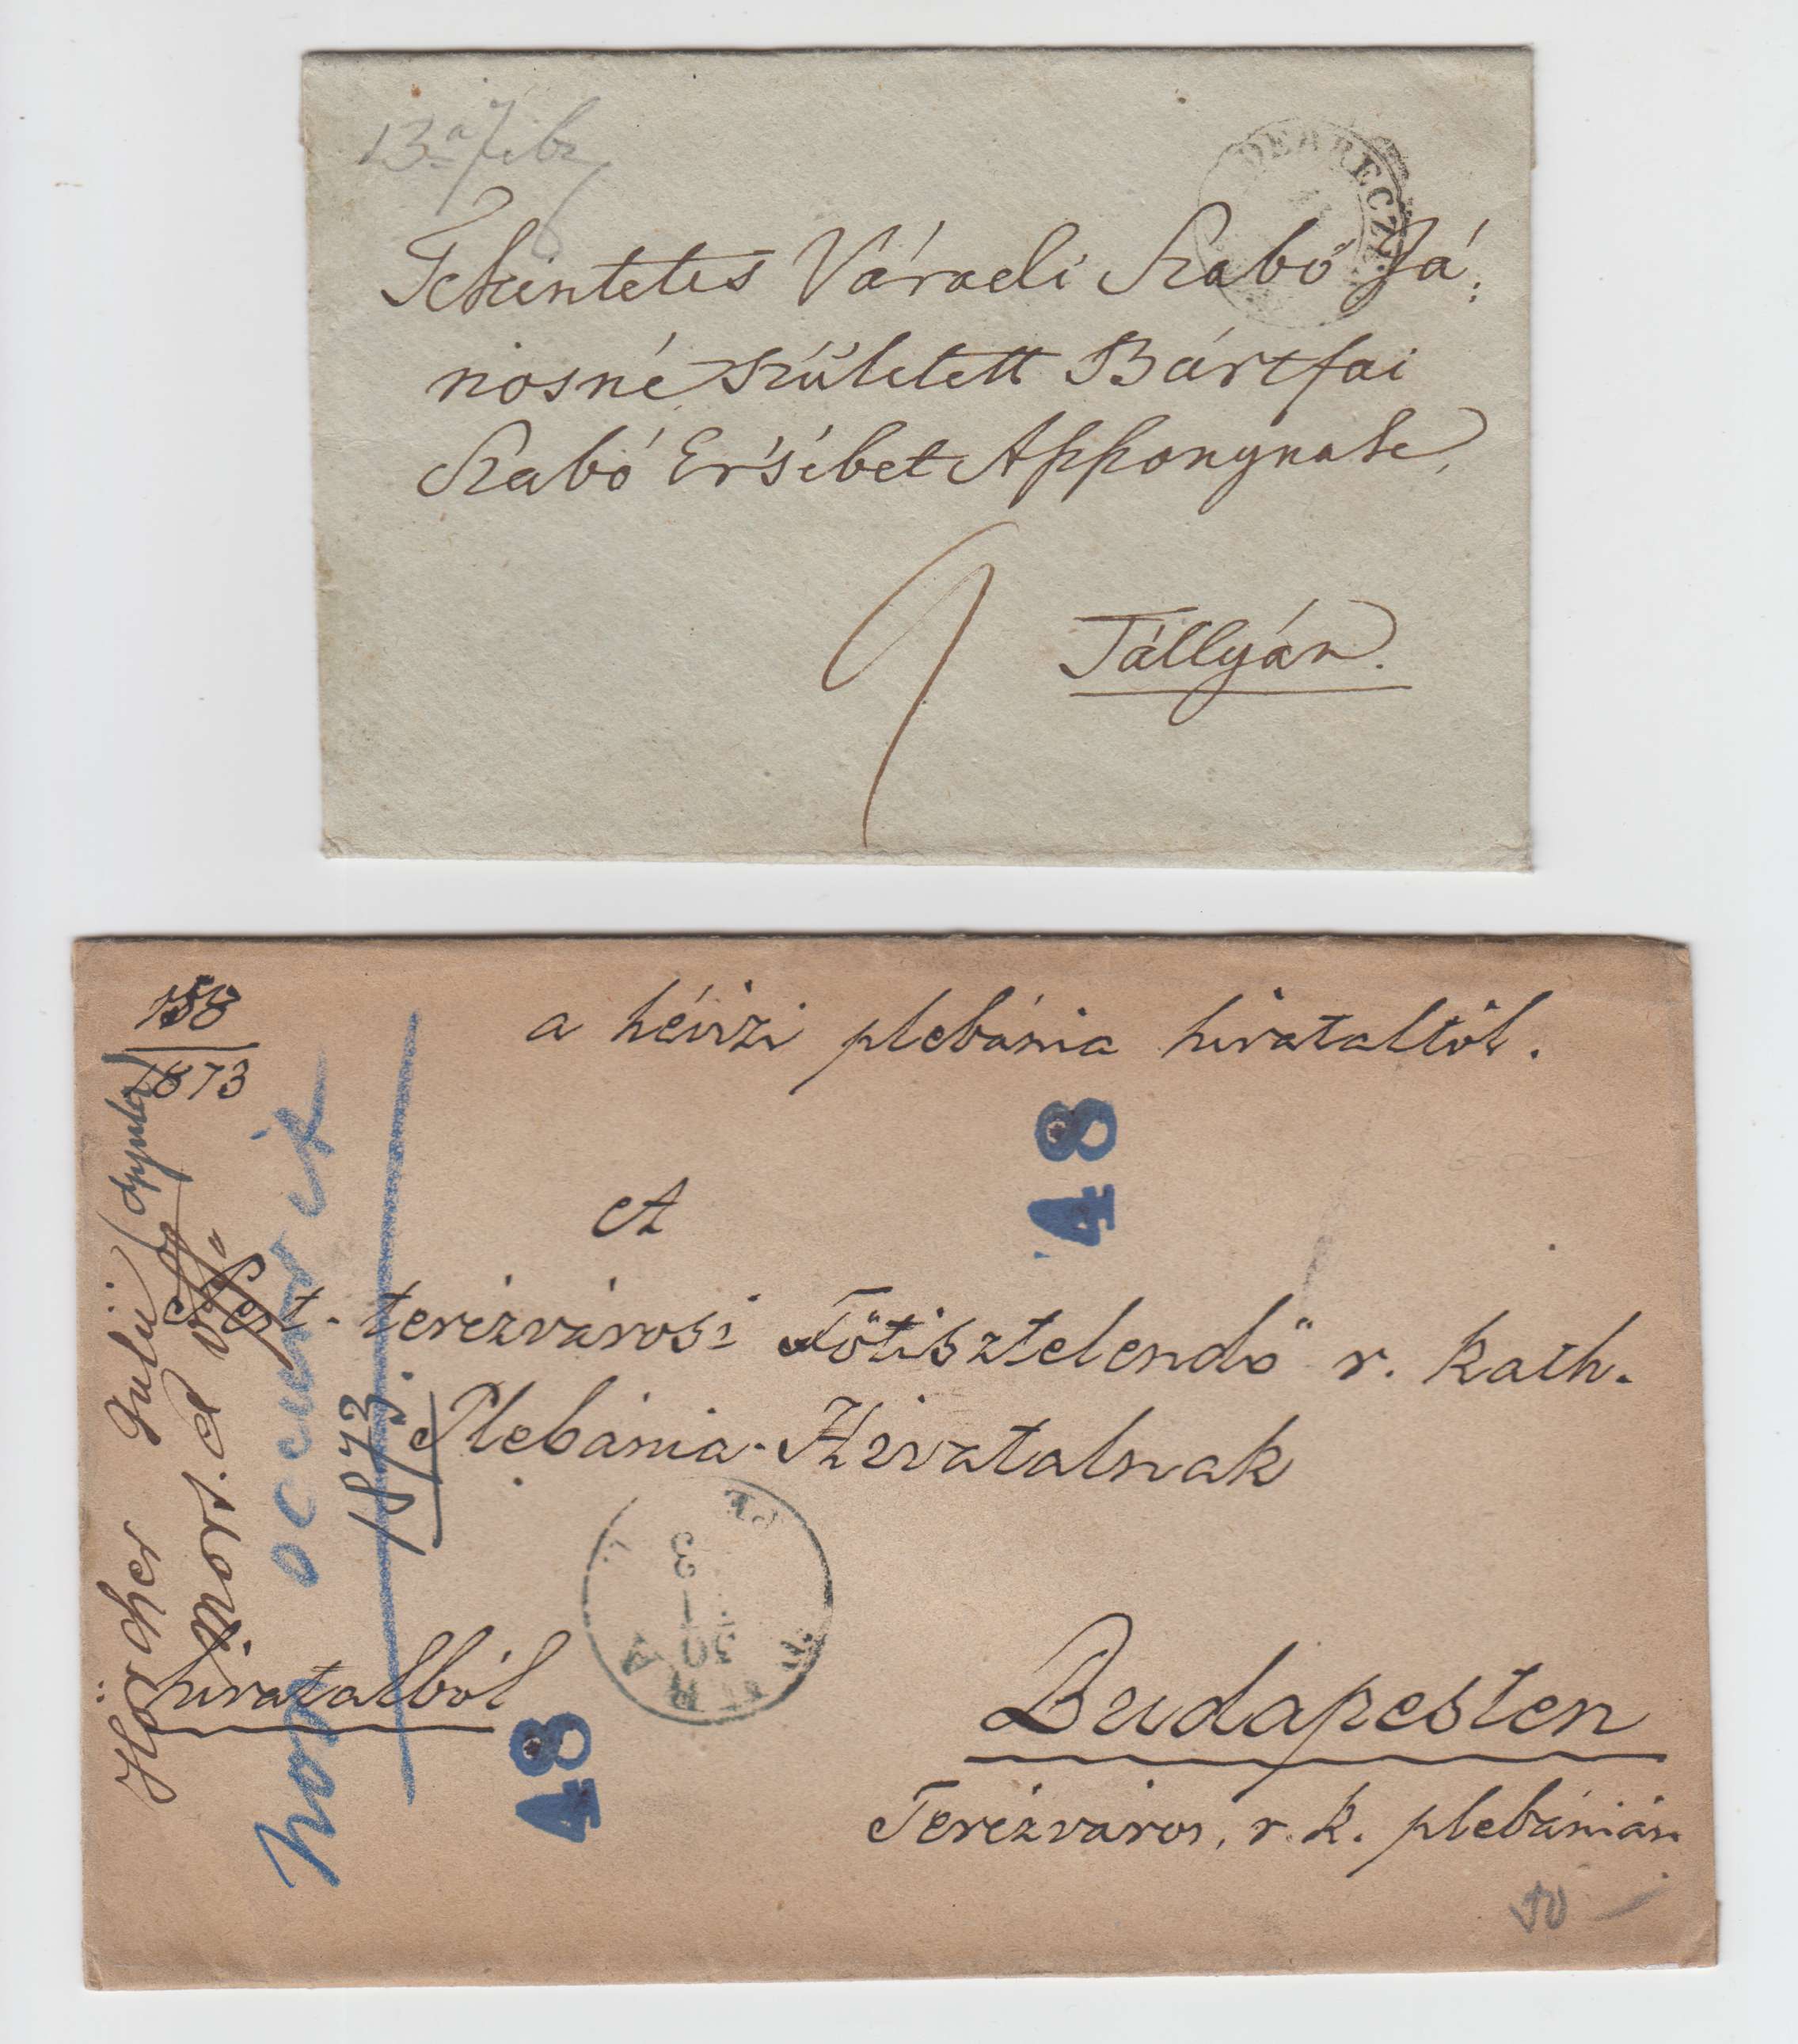 13.a Febr
DEBRECZEN
Tekintetes Váradi Szabó Já:
nosné született Bártfai
Szabó Ersébet Apponynak
9
Tállyán.
158
1873
a hévizi plebánia hivataltól.
48
A
Pest-terézvárosi Főtisztelendő r. kath.
Plebánia-Hivatalnak
hivatalból
48
Budapesten
Terézváros, r. k. plebánián
50
Horcher Julii
mors.
non occurrit
1873.